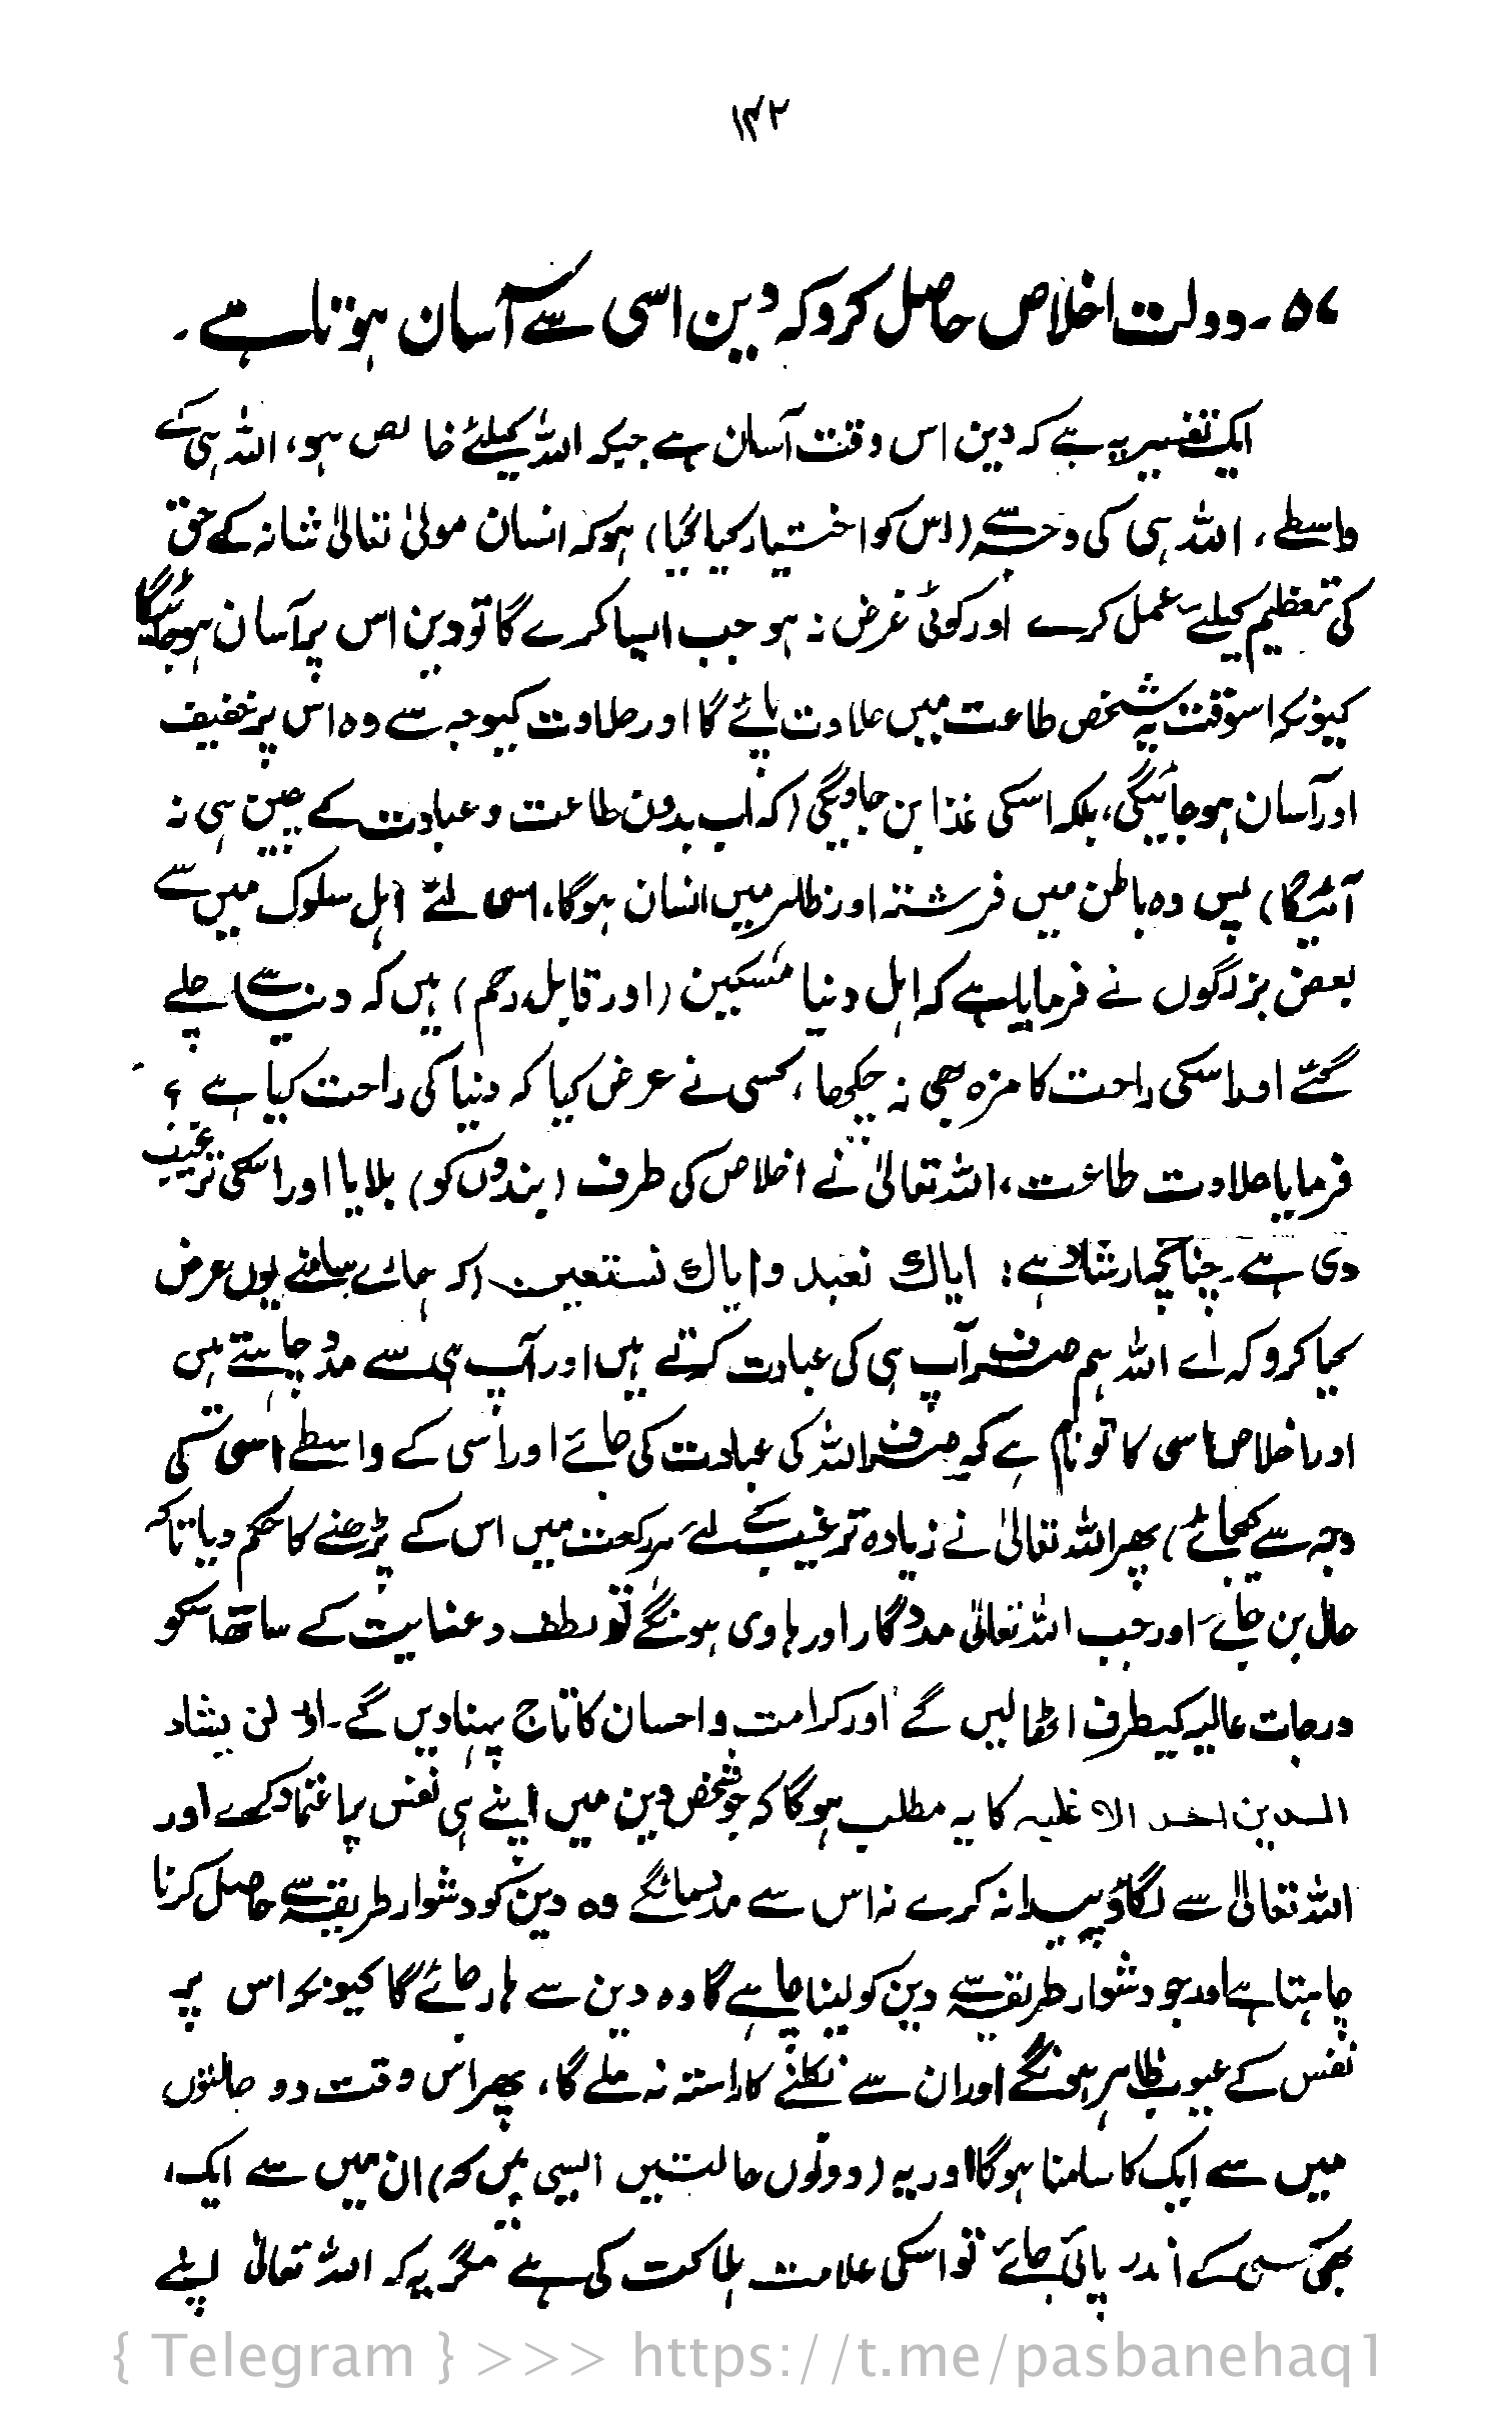 ۱۴۲
۵۷ ۔ دولت اخلاص حاصل کرو کہ دین اسی سے آسان ہوتا ہے ۔
ایک تفسیر یہ ہے کہ دین اس وقت آسان ہے جبکہ اللہ کیلئے خالص ہو، اللہ ہی کے
واسطے، اللہ ہی کی وجہ سے (اس کو اختیار کیا گیا) ہو کہ انسان مولیٰ تعالیٰ شانہ کے حق
کی تعظیم کیلئے عمل کرے اور کوئی غرض نہ ہو جب ایسا کرے گا تو دین اس پر آسان ہو جائیگا
کیونکہ اسوقت یہ شخص طاعت میں حلاوت پائے گا اور حلاوت کیوجہ سے وہ اس پر خفیف
اور آسان ہو جائیگی، بلکہ اسکی غذا بن جاویگی (کہ اب بدون طاعت و عبادت کے چین ہی نہ
آئیگا) پس وہ باطن میں فرشتہ اور ظاہر میں انسان ہوگا، اسی لئے اہل سلوک میں سے
بعض بزرگوں نے فرمایا ہے کہ اہل دنیا مسکین (اور قابل رحم) ہیں کہ دنیا سے چلے
گئے اور اسکی راحت کا مزہ بھی نہ چکھا، کسی نے عرض کیا کہ دنیا کی راحت کیا ہے ؟
فرمایا حلاوت طاعت، اللہ تعالیٰ نے اخلاص کی طرف (بندوں کو) بلایا اور اسکی ترغیب
دی ہے۔ چنانچہ ارشاد ہے: ایاك نعبد وایاك نستعین (کہ ہمارے سامنے یوں عرض
کیا کرو کہ اے اللہ ہم صرف آپ ہی کی عبادت کرتے ہیں اور آپ ہی سے مدد چاہتے ہیں
اور اخلاص اسی کا تو نام ہے کہ صرف اللہ کی عبادت کی جائے اور اسی کے واسطے اسی کی
وجہ سے کیجائے) پھر اللہ تعالیٰ نے زیادہ ترغیب کے لئے ہر رکعت میں اس کے پڑھنے کا حکم دیا تاکہ
حال بن جائے اور جب اللہ تعالیٰ مددگار اور ہادی ہونگے تو لطف و عنایت کے ساتھ اسکو
درجات عالیہ کیطرف اٹھا لیں گے اور کرامت و احسان کا تاج پہنا دیں گے۔ اور لن یشاد
الدین احد الا غلبہ کا یہ مطلب ہوگا کہ جو شخص دین میں اپنے ہی نفس پر اعتماد کرے اور
اللہ تعالیٰ سے لگاؤ پیدا نہ کرے نہ اس سے مدد مانگے وہ دین کو دشوار طریقہ سے حاصل کرنا
چاہتا ہے اور جو دشوار طریقہ سے دین کو لینا چاہے گا وہ دین سے ہار جائے گا کیونکہ اس پر
نفس کے عیوب ظاہر ہونگے اور ان سے نکلنے کا راستہ نہ ملے گا، پھر اس وقت دو حالتوں
میں سے ایک کا سامنا ہوگا اور یہ (دونوں حالتیں ایسی ہیں کہ) ان میں سے ایک
بھی کسی کے اندر پائی جائے تو اسکی علامت ہلاکت کی ہے مگر یہ کہ اللہ تعالیٰ اپنے
{ Telegram } >>> https://t.me/pasbanehaq1